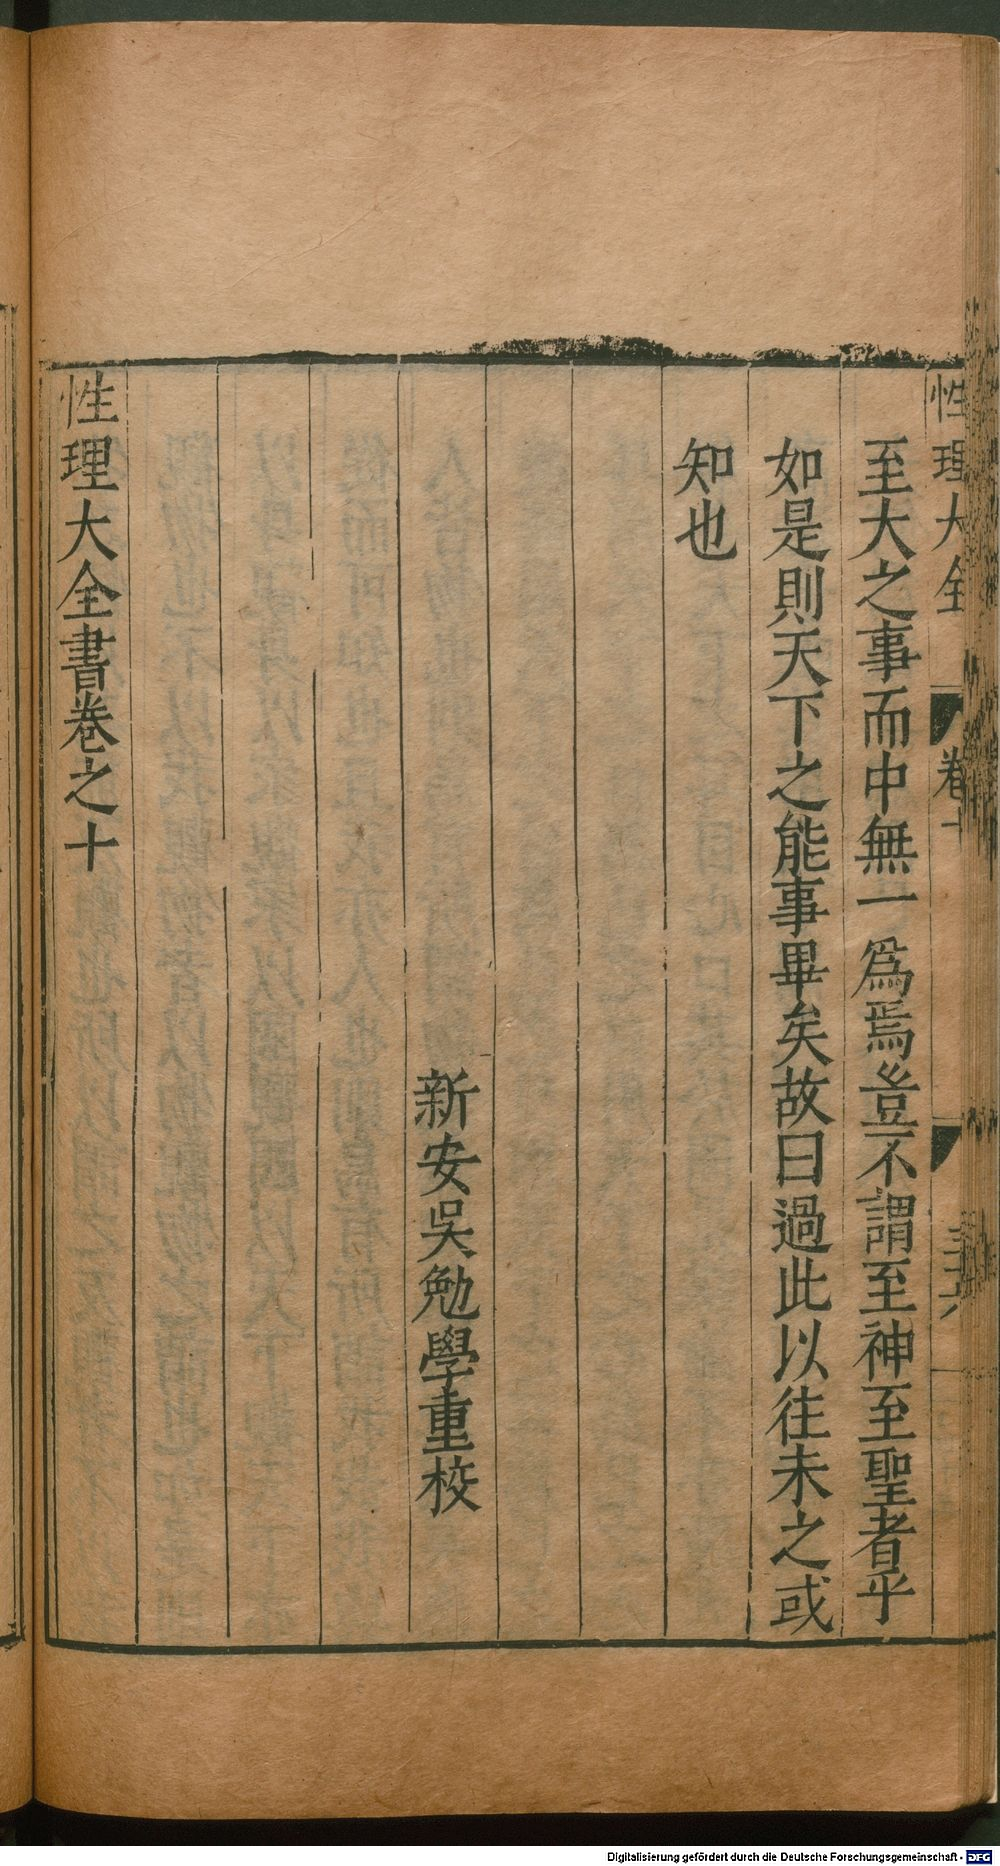 性理大全
卷十
三十六
至大之事而中無一爲焉豈不謂至神至聖者乎
如是則天下之能事畢矣故曰過此以往未之或
知也
新安吳勉學重校
性理大全書卷之十
Digitalisierung gefördert durch die Deutsche Forschungsgemeinschaft - DFG